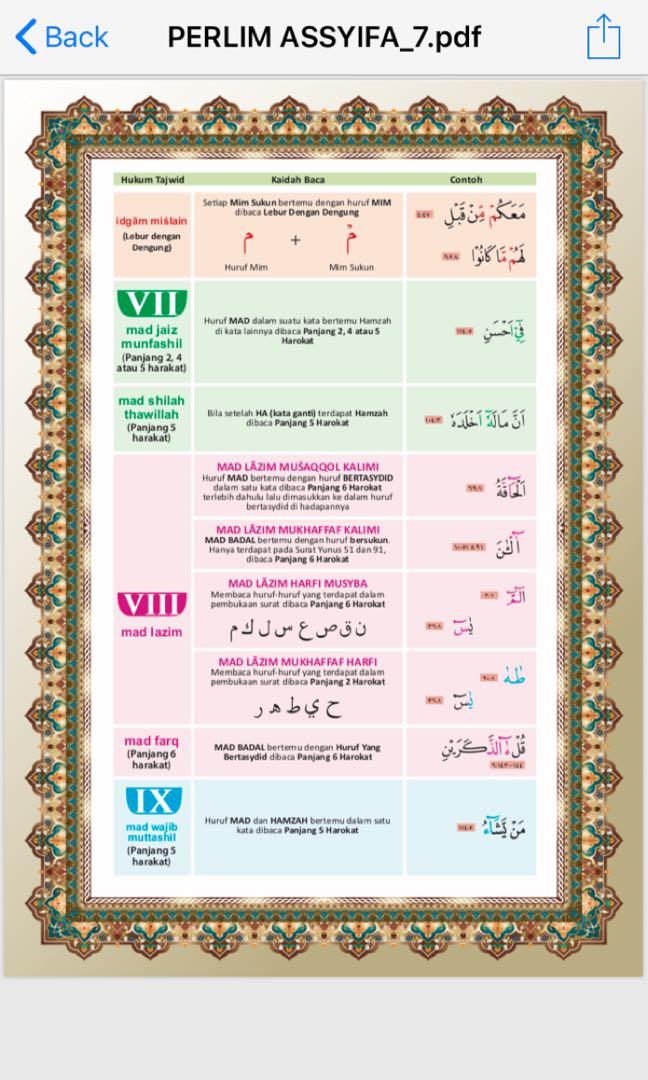 Back
PERLIM ASSYIFA_7.pdf
Hukum Tajwid
Kaidah Baca
Contoh
idgām miślain
(Lebur dengan
Dengung)
Setiap Mim Sukun bertemu dengan huruf MIM
dibaca Lebur Dengan Dengung
م + مْ
Huruf Mim
Mim Sukun
مَعَكُمْ مِّنْ قَبْلِ
لَهُمْ مَّا كَانُوْا
VII
mad jaiz
munfashil
(Panjang 2, 4
atau 5 harakat)
Huruf MAD dalam suatu kata bertemu Hamzah
di kata lainnya dibaca Panjang 2, 4 atau 5
Harokat
فِيْٓ اَحْسَنِ
mad shilah
thawillah
(Panjang 5
harakat)
Bila setelah HA (kata ganti) terdapat Hamzah
dibaca Panjang 5 Harokat
اَنَّ مَالَهٗٓ اَخْلَدَهٗ
١٠٤:٣
VIII
mad lazim
MAD LĀZIM MUŚAQQOL KALIMI
Huruf MAD bertemu dengan huruf BERTASYDID
dalam satu kata dibaca Panjang 6 Harokat
terlebih dahulu lalu dimasukkan ke dalam huruf
bertasydid di hadapannya
اَلْحَاۤقَّةُ
٦٩:١
MAD LĀZIM MUKHAFFAF KALIMI
MAD BADAL bertemu dengan huruf bersukun.
Hanya terdapat pada Surat Yunus 51 dan 91,
dibaca Panjang 6 Harokat
آٰلْـٰٔنَ
MAD LĀZIM HARFI MUSYBA
Membaca huruf-huruf yang terdapat dalam
pembukaan surat dibaca Panjang 6 Harokat
ن ق ص ع س ل ك م
الۤمّۤ
٢:١
يٰسۤ
٣٦:١
MAD LĀZIM MUKHAFFAF HARFI
Membaca huruf-huruf yang terdapat dalam
pembukaan surat dibaca Panjang 2 Harokat
ح ي ط ه ر
طٰهٰ
٢٠:١
يٰسۤ
٣٦:١
mad farq
(Panjang 6
harakat)
MAD BADAL bertemu dengan Huruf Yang
Bertasydid dibaca Panjang 6 Harokat
قُلْ ءٰۤالذَّكَرَيْنِ
٦:١٤٣-١٤٤
IX
mad wajib
muttashil
(Panjang 5
harakat)
Huruf MAD dan HAMZAH bertemu dalam satu
kata dibaca Panjang 5 Harokat
مَنْ يَّشَاۤءُ